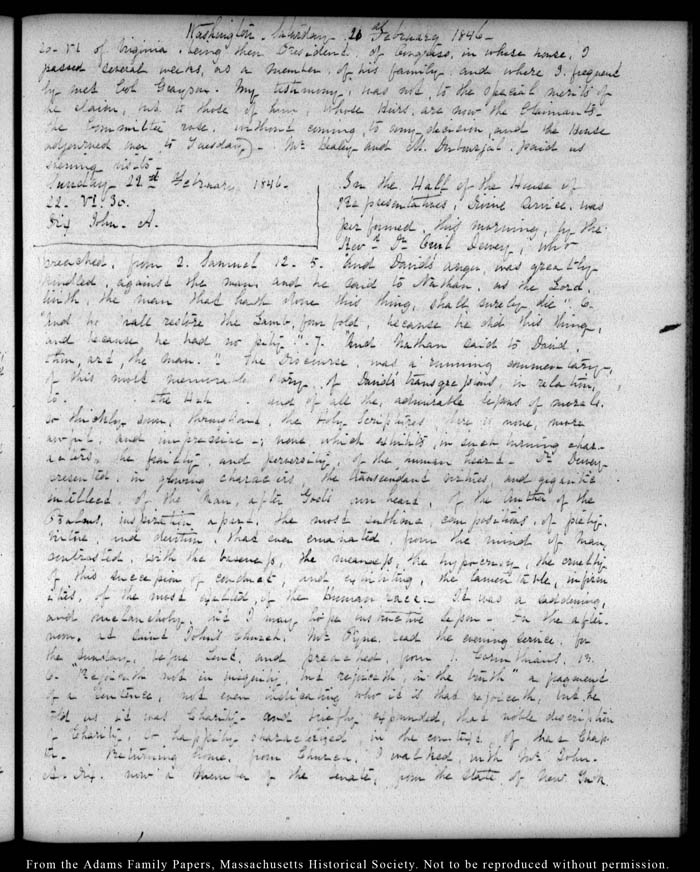 Washington. Saturday 21 February 1846-
20. VI of Virginia. being then President of Congress, in whose house, I
passed several weeks, as a member of his family and where I frequent
ly met Col Grayson. My testimony, was not to the special merits of
the claim, but to those of him, whose Heirs, are now the Claimants-
The Committee rose, without coming to any decision, and the House
adjourned over to Tuesday. Mr Healey and M. Dubourjal paid us
evening visits-
Sunday 22d February 1846.
22. VI. 30.
Dix John. A.
In the Hall of the House of
Representatives, Divine service, was
performed, this morning, by the
Revd Dr Dewey, who
preached, from 2. Samuel 12. 5. "And David's anger, was greatly
kindled, against the man, and he said to Nathan, as the Lord
liveth, the man that hath done this thing, shall surely die" 6.
"And he shall restore the Lamb, four fold, because he did this thing,
and because he had no pity". 7. "And Nathan said to David
thou, art, the man." The Discourse, was a running commentary,
of this most memorable story, of David's transgressions, in relation,
to and of all the admirable lessons of morals.
so thickly sown, throughout, the Holy Scriptures, there is none, more
awful, and impressive-; none which exhibits, in such burning char-
acters, the frailty, and perversity, of the human heart- Dr Dewey
presented, in glowing characters, the transcendent virtues, and gigantic
intellect, of the Man, after God's own heart, of the Author of the
Psalms, inspiration apart, the most sublime, compositions, of piety-
virtue, and devotion, that ever emanated, from the mind of Man,
contrasted, with the baseness, the meanness, the hypocrisy, the cruelty
of this succession of conduct, and exhibiting, the lamentable, infirm
ities, of the most exalted, of the human race- It was a saddening,
and melancholy, but I may hope instructive lesson- In the after-
noon, at Saint John's Church. Mr Pyne, read the evening service, for
the Sunday, before Lent, and preached, from 1. Corinthians, 13.
6. "Rejoiceth not in iniquity, but rejoiceth, in the truth" a fragment
of a sentence, not even indicating who it is that rejoiceth, but he
told us it was Charity- and briefly expounded, that noble description
of Charity, so happily characterised, in the of that Chap-
ter- Returning home, from Church, I walked, with Mr John-
A. Dix. now a Member of the Senate, from the State of New York
From the Adams Family Papers, Massachusetts Historical Society. Not to be reproduced without permission.